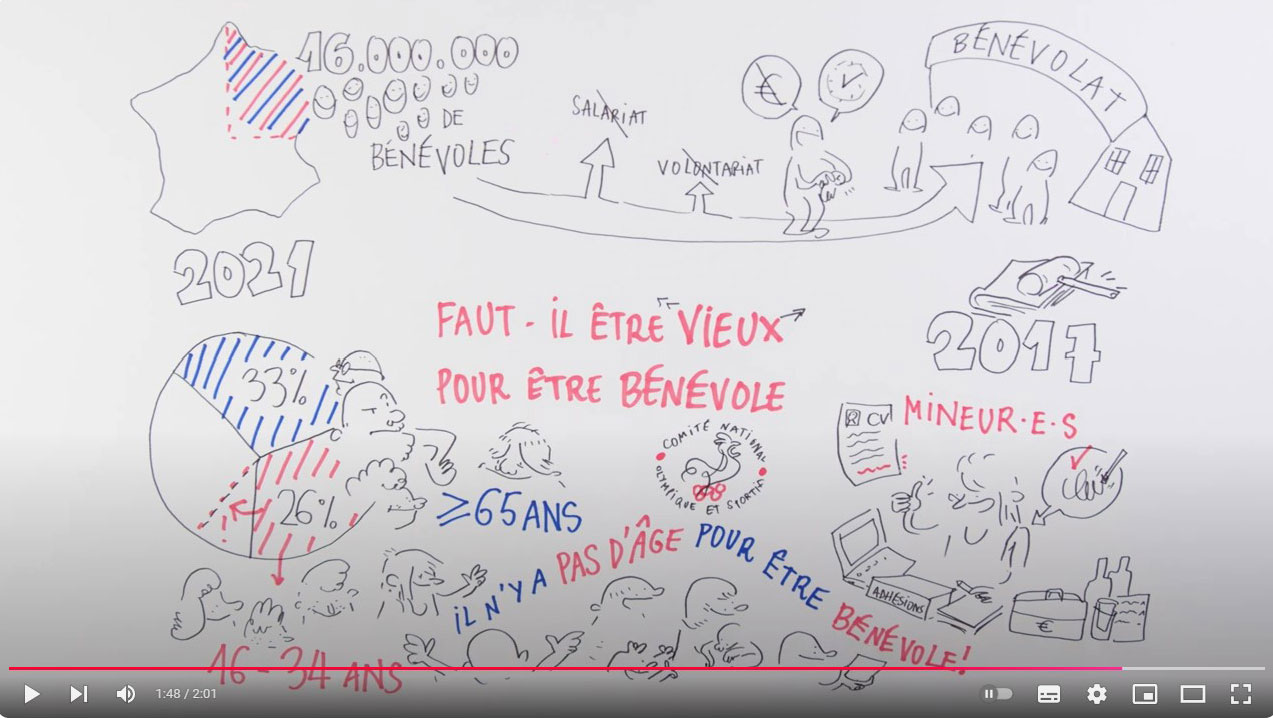 16.000.000
DE
BÉNÉVOLES
SALARIAT
VOLONTARIAT
€
BÉNÉVOLAT
2021
33%
26%
≥65 ANS
16-34 ANS
FAUT-IL ÊTRE VIEUX
POUR ÊTRE BÉNÉVOLE
COMITÉ NATIONAL
OLYMPIQUE ET SPORTIF
IL N'Y A PAS D'ÂGE POUR ÊTRE
BÉNÉVOLE!
2017
MINEUR·E·S
CV
ADHÉSIONS
€
1:48 / 2:01